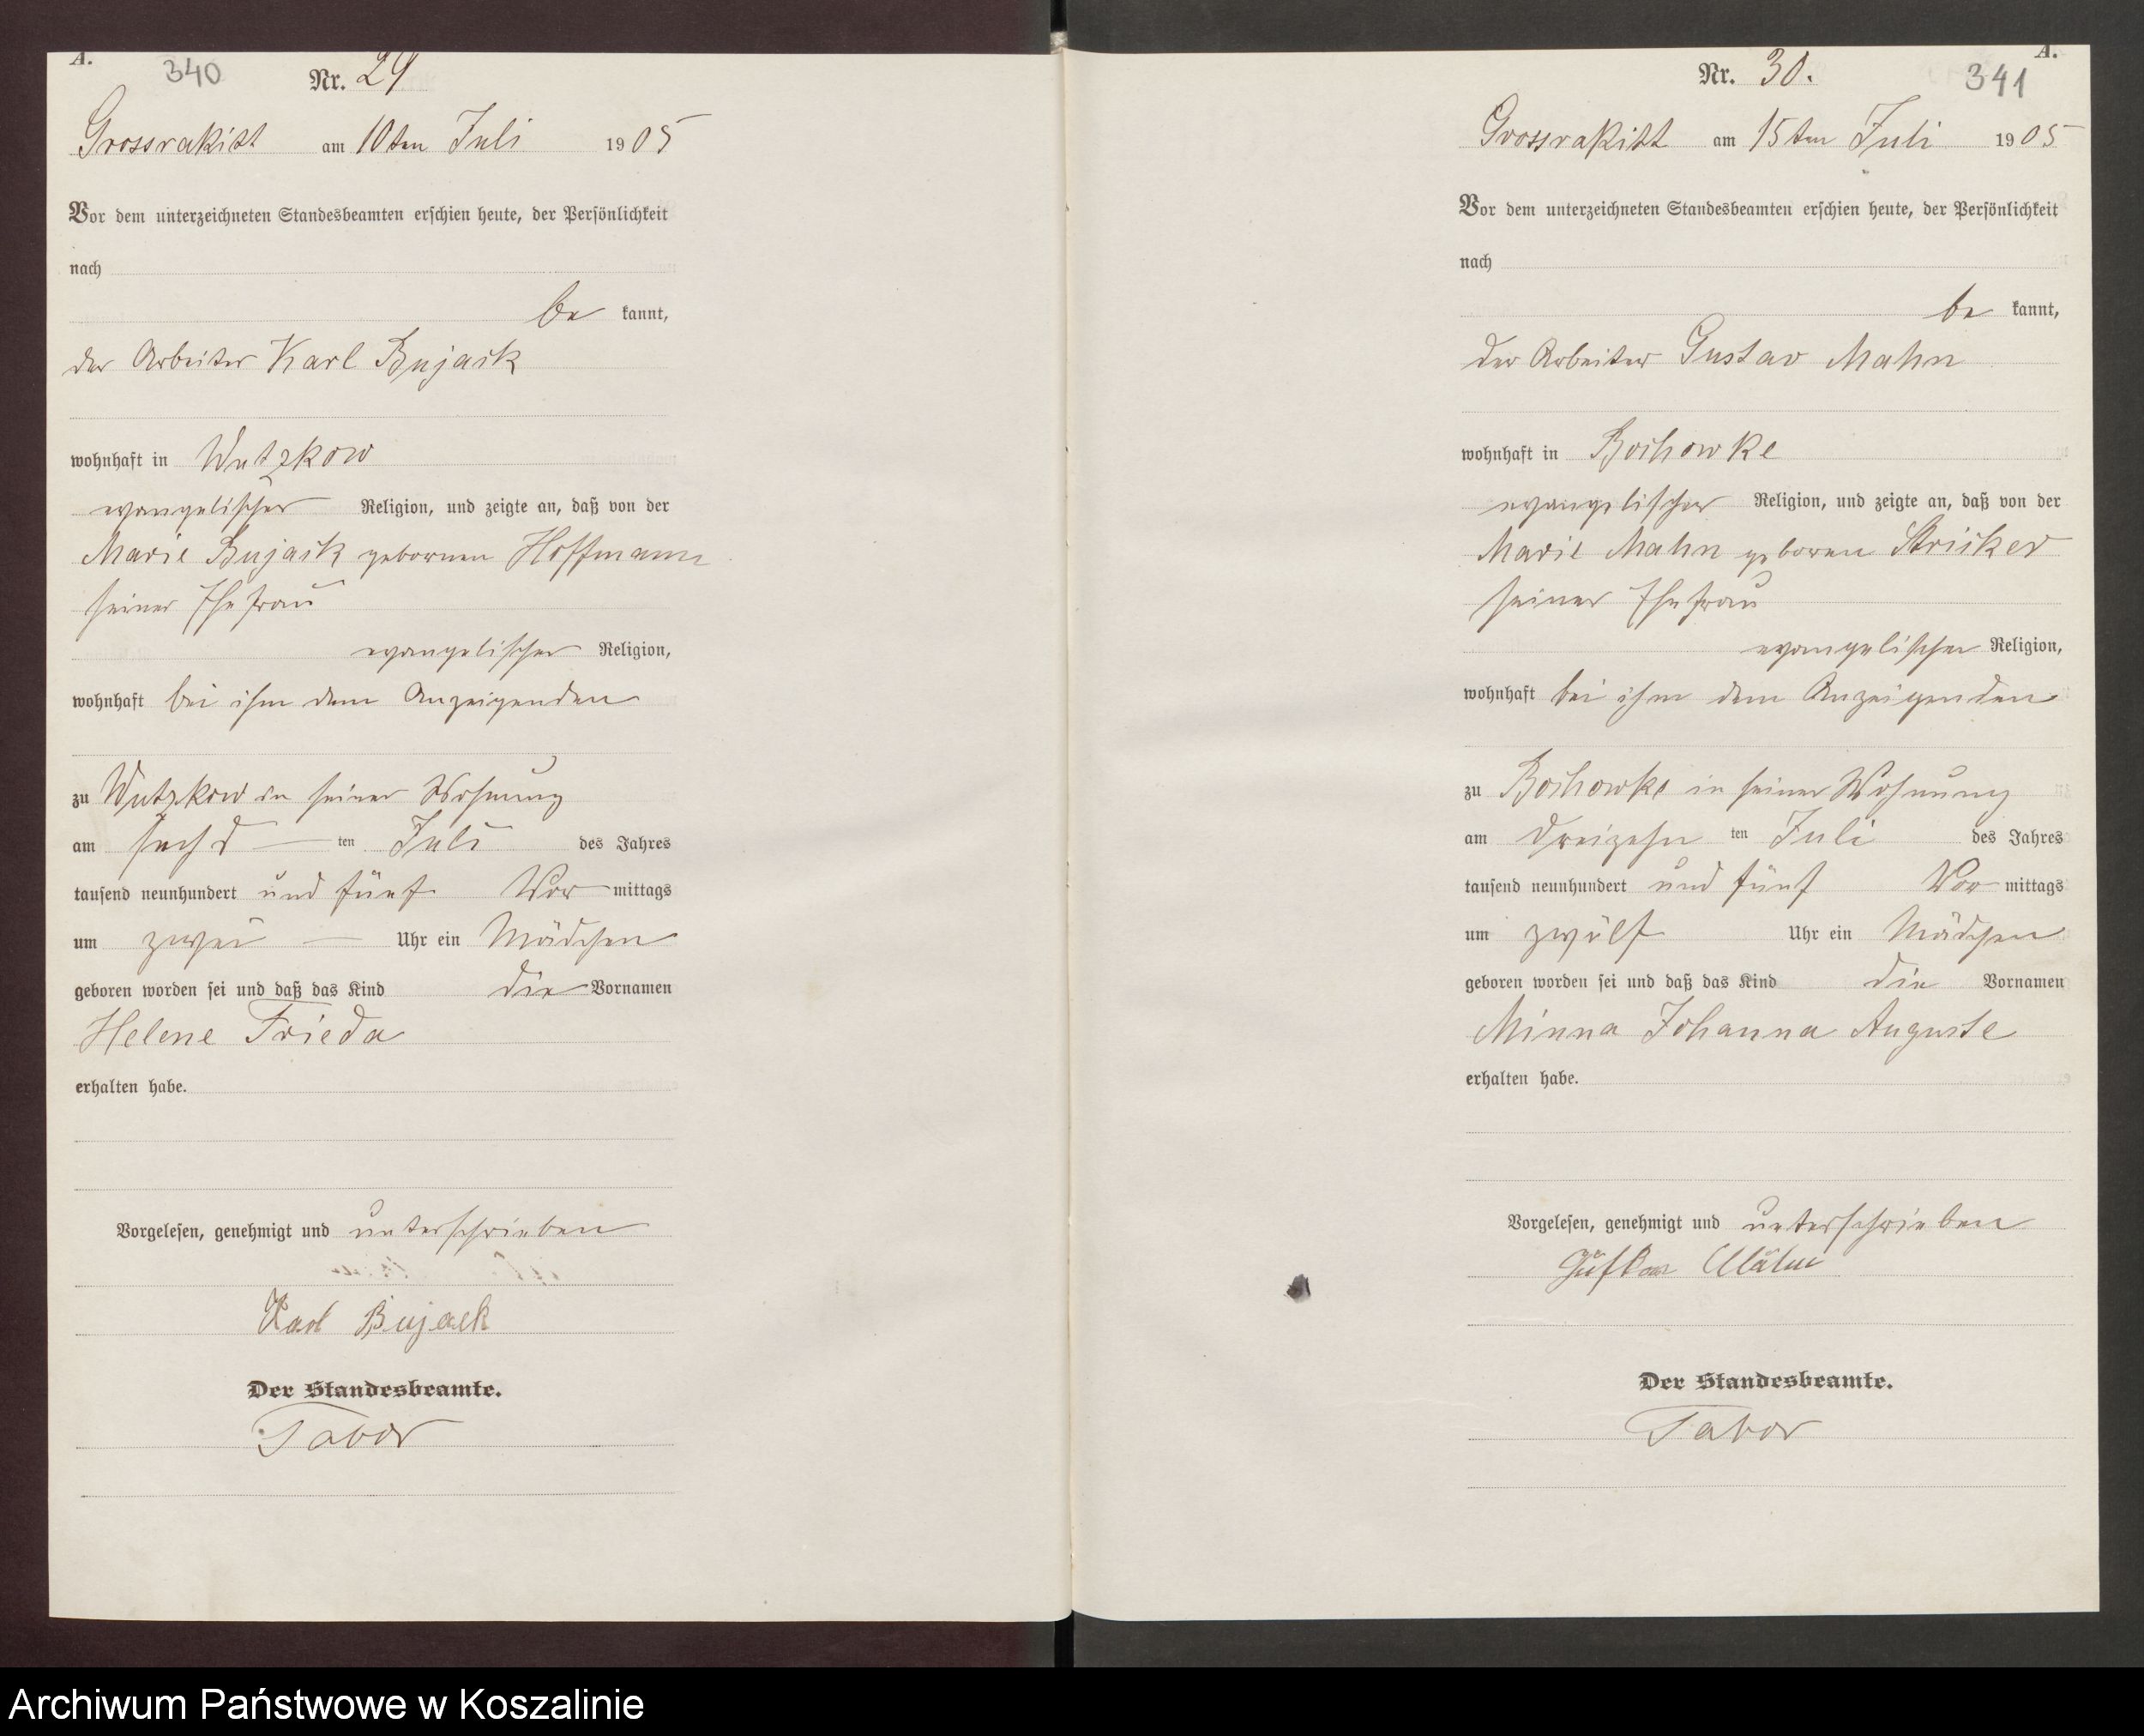 A.
340
Nr. 29
Grossrakitt am 10ten Juli 1905
Vor dem unterzeichneten Standesbeamten erschien heute, der Persönlichkeit
nach
be kannt,
der Arbeiter Karl Bujack
wohnhaft in Wutzkow
evangelischer Religion, und zeigte an, daß von der
Marie Bujack geborenen Hoffmann
seiner Ehefrau
evangelischer Religion,
wohnhaft bei ihm dem Anzeigenden
zu Wutzkow in seiner Wohnung
am sechs ten Juli des Jahres
tausend neunhundert und fünf Vor mittags
um zwei Uhr ein Mädchen
geboren worden sei und daß das Kind die Vornamen
Helene Frieda
erhalten habe.
Vorgelesen, genehmigt und unterschrieben
Karl Bujack
Der Standesbeamte.
Tabor
A.
Nr. 30.
341
Grossrakitt am 15ten Juli 1905
Vor dem unterzeichneten Standesbeamten erschien heute, der Persönlichkeit
nach
be kannt,
der Arbeiter Gustav Mahn
wohnhaft in Bochowke
evangelischer Religion, und zeigte an, daß von der
Marie Mahn geboren Stricker
seiner Ehefrau
evangelischer Religion,
wohnhaft bei ihm dem Anzeigenden
zu Bochowke in seiner Wohnung
am dreizehn ten Juli des Jahres
tausend neunhundert und fünf Vor mittags
um zwölf Uhr ein Mädchen
geboren worden sei und daß das Kind die Vornamen
Minna Johanna Auguste
erhalten habe.
Vorgelesen, genehmigt und unterschrieben
Gustav Mahn
Der Standesbeamte.
Tabor
Archiwum Państwowe w Koszalinie